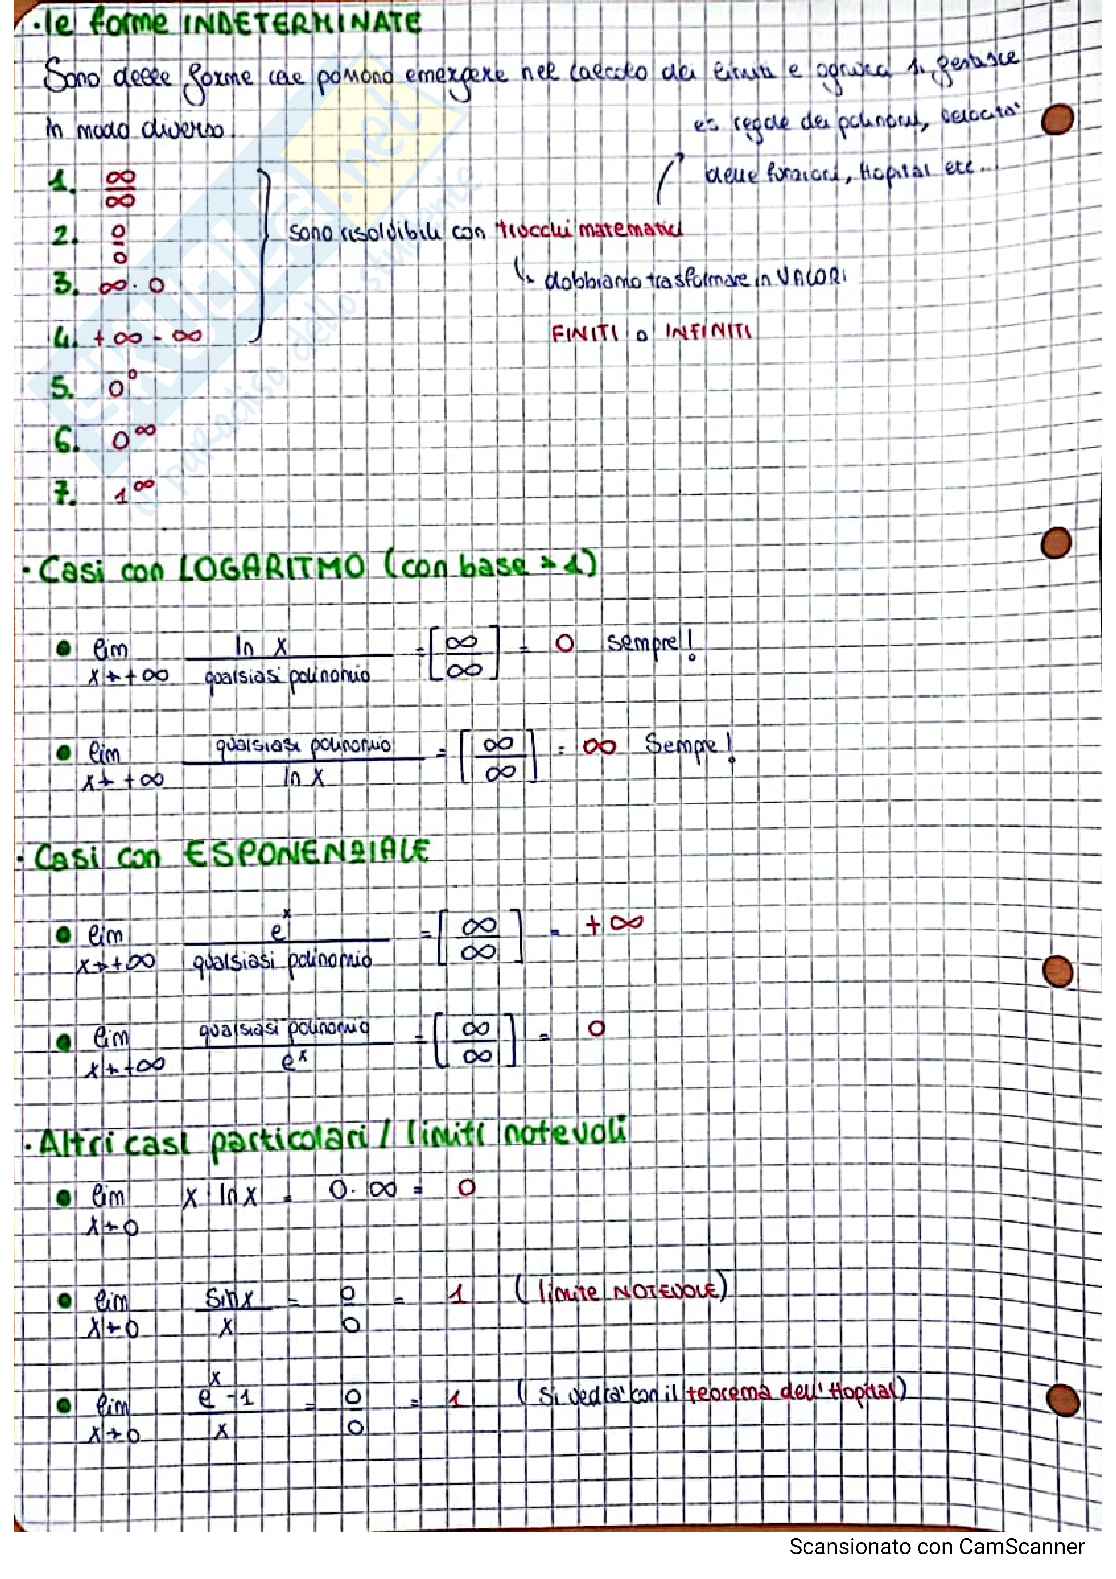 · le forme INDETERMINATE
Sono delle forme che possono emergere nel calcolo dei limiti e ognuna si gestisce
in modo diverso
es regole dei polinomi, velocità
delle funzioni, Hopital etc...
1. ∞/∞
2. 0/0
sono risolvibili con trucchi matematici
3. ∞·0
↳ dobbiamo trasformare in VALORI
4. +∞ - ∞
FINITI o INFINITI
5. 0⁰
6. 0^∞
7. 1^∞
· Casi con LOGARITMO (con base > 1)
• lim x→+∞ ln x / qualsiasi polinomio = [∞/∞] = 0 sempre!
• lim x→+∞ qualsiasi polinomio / ln x = [∞/∞] = ∞ Sempre!
· Casi con ESPONENZIALE
• lim x→+∞ e^x / qualsiasi polinomio = [∞/∞] = +∞
• lim x→+∞ qualsiasi polinomio / e^x = [∞/∞] = 0
· Altri casi particolari / limiti notevoli
• lim x→0 x ln x = 0·∞ = 0
• lim x→0 sin x / x = 0/0 = 1 (limite NOTEVOLE)
• lim x→0 e^x -1 / x = 0/0 = 1 (Si vedrà con il teorema dell'Hopital)
Scansionato con CamScanner